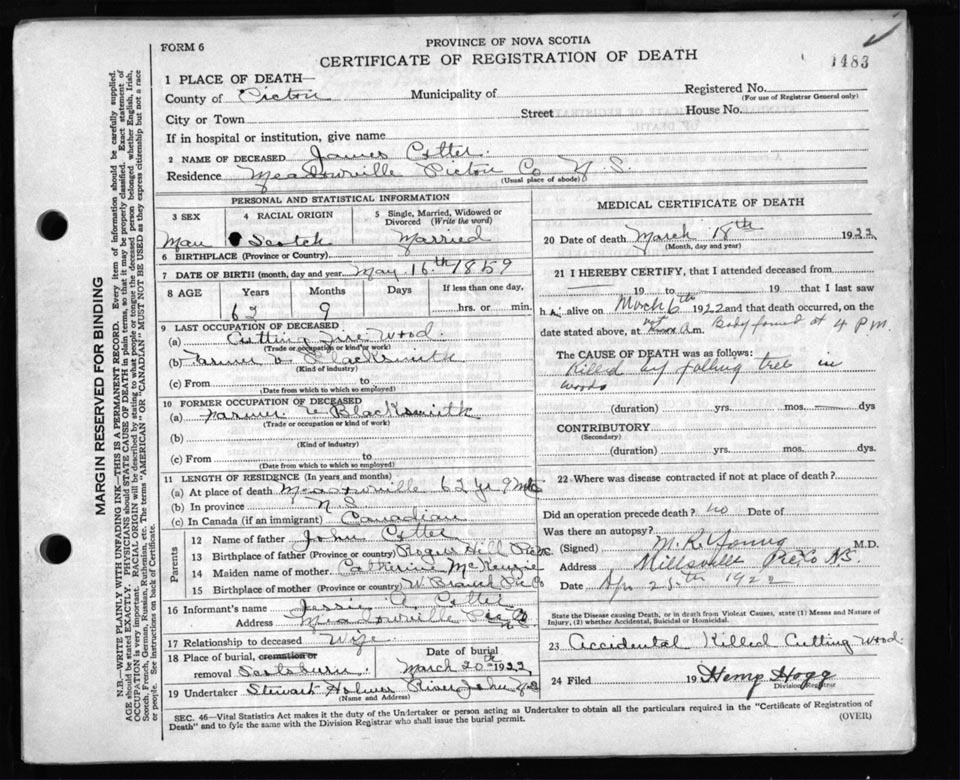 FORM 6
PROVINCE OF NOVA SCOTIA
CERTIFICATE OF REGISTRATION OF DEATH
1483
1 PLACE OF DEATH—
County of Pictou Municipality of Registered No.
(For use of Registrar General only)
City or Town Street House No.
If in hospital or institution, give name
2 NAME OF DECEASED James Cotter.
Residence Meadowville Pictou Co N. S.
(Usual place of abode)
PERSONAL AND STATISTICAL INFORMATION
3 SEX 4 RACIAL ORIGIN 5 Single, Married, Widowed or Divorced (Write the word)
Man Scotch Married
6 BIRTHPLACE (Province or Country)
7 DATE OF BIRTH (month, day and year) May 16th 1859
8 AGE Years Months Days If less than one day,
62 9 hrs. or min.
9 LAST OCCUPATION OF DECEASED
(a) Cutting Fire Wood.
(Trade or occupation or kind of work)
(b) Farmer & Blacksmith
(Kind of industry)
(c) From to
(Date from which to which so employed)
10 FORMER OCCUPATION OF DECEASED
(a) Farmer & Blacksmith
(Trade or occupation or kind of work)
(b)
(Kind of industry)
(c) From to
(Date from which to which so employed)
11 LENGTH OF RESIDENCE (In years and months)
(a) At place of death Meadowville 62 yr 9 Mts
(b) In province N. S.
(c) In Canada (if an immigrant) Canadian
Parents
12 Name of father John Cotter
13 Birthplace of father (Province or country) Rogers Hill Pic Co
14 Maiden name of mother Catherine McKenzie
15 Birthplace of mother (Province or country) W. Branch Pic Co
16 Informant's name Jessie A. Cotter
Address Meadowville Pic Co N.S.
17 Relationship to deceased Wife
18 Place of burial, cremation or removal Scotsburn. Date of burial March 20th 1922
19 Undertaker Stewart Holmes River John N.S
(Name and Address)
MEDICAL CERTIFICATE OF DEATH
20 Date of death March 18th 1922
(Month, day and year)
21 I HEREBY CERTIFY, that I attended deceased from
19 to 19 that I last saw
h alive on March 6th 1922 and that death occurred, on the
date stated above, at m. Body found at 4 P.M.
The CAUSE OF DEATH was as follows:
Killed by falling tree in
woods
(duration) yrs. mos. dys
CONTRIBUTORY
(Secondary)
(duration) yrs. mos. dys.
22 Where was disease contracted if not at place of death?
Did an operation precede death? no Date of
Was there an autopsy?
(Signed) M. R. Young M.D.
Address Millsville Pic Co N.S.
Date Apr 25th 1922
State the Disease causing Death, or in death from Violent Causes, state (1) Means and Nature of Injury, (2) whether Accidental, Suicidal or Homicidal.
23 Accidental Killed Cutting Wood.
24 Filed 19 Hemp Hogg
Division Registrar
SEC. 46—Vital Statistics Act makes it the duty of the Undertaker or person acting as Undertaker to obtain all the particulars required in the "Certificate of Registration of
Death" and to fyle the same with the Division Registrar who shall issue the burial permit. (OVER)
MARGIN RESERVED FOR BINDING
N.B.—WRITE PLAINLY WITH UNFADING INK—THIS IS A PERMANENT RECORD. Every item of information should be carefully supplied.
AGE should be stated EXACTLY. PHYSICIANS should STATE CAUSE OF DEATH in plain terms, so that it may be properly classified. Exact statement of
OCCUPATION is very important. RACIAL ORIGIN will be described by stating to what people or tongue the deceased person belonged whether English, Irish,
Scotch, French, German, Russian, Ruthenian, etc. The terms "AMERICAN" OR "CANADIAN" MUST NOT BE USED as they express citizenship but not a race
or people. See instructions on back of Certificate.